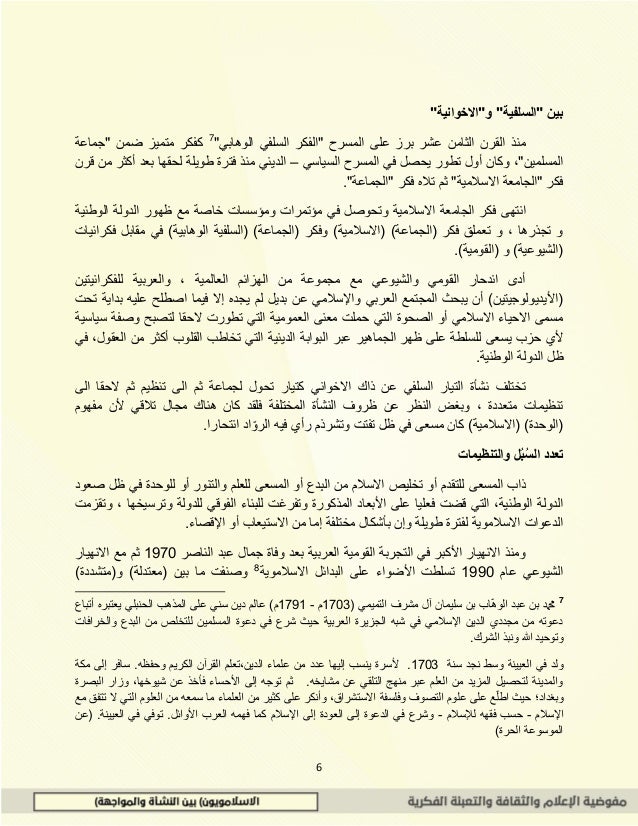 بين "السلفية" و"الاخوانية"
منذ القرن الثامن عشر برز على المسرح "الفكر السلفي الوهابي"7 كفكر متميز ضمن "جماعة
المسلمين"، وكان أول تطور يحصل في المسرح السياسي – الديني منذ فترة طويلة لحقها بعد أكثر من قرن
فكر "الجامعة الاسلامية" ثم تلاه فكر "الجماعة".
انتهى فكر الجامعة الاسلامية وتحوصل في مؤتمرات ومؤسسات خاصة مع ظهور الدولة الوطنية
و تجذرها ، و تعملق فكر (الجماعة) (الاسلامية) وفكر (الجماعة) (السلفية الوهابية) في مقابل فكرانيات
(الشيوعية) و (القومية).
أدى اندحار القومي والشيوعي مع مجموعة من الهزائم العالمية ، والعربية للفكرانيتين
(الأيديولوجيتين) أن يبحث المجتمع العربي والإسلامي عن بديل لم يجده إلا فيما اصطلح عليه بداية تحت
مسمى الاحياء الاسلامي أو الصحوة التي حملت معنى العمومية التي تطورت لاحقا لتصبح وصفة سياسية
لأي حزب يسعى للسلطة على ظهر الجماهير عبر البوابة الدينية التي تخاطب القلوب أكثر من العقول، في
ظل الدولة الوطنية.
تختلف نشأة التيار السلفي عن ذاك الاخواني كتيار تحول لجماعة ثم الى تنظيم ثم لاحقا الى
تنظيمات متعددة ، وبغض النظر عن ظروف النشأة المختلفة فلقد كان هناك مجال تلاقي لأن مفهوم
(الوحدة) (الاسلامية) كان مسعى في ظل تفتت وتشرذم رأي فيه الروّاد انتحارا.
تعدد السُبُل والتنظيمات
ذاب المسعى للتقدم أو تخليص الاسلام من البدع أو المسعى للعلم والتنور أو للوحدة في ظل صعود
الدولة الوطنية، التي قضت فعليا على الأبعاد المذكورة وتفرغت للبناء الفوقي للدولة وترسيخها ، وتقزمت
الدعوات الاسلاموية لفترة طويلة وإن بأشكال مختلفة إما من الاستيعاب أو الإقصاء.
ومنذ الانهيار الأكبر في التجربة القومية العربية بعد وفاة جمال عبد الناصر 1970 ثم مع الانهيار
الشيوعي عام 1990 تسلطت الأضواء على البدائل الاسلاموية8 وصنفت ما بين (معتدلة) و(متشددة)
7 محمد بن عبد الوهّاب بن سليمان آل مشرف التميمي (1703م - 1791م) عالم دين سني على المذهب الحنبلي يعتبره أتباع
دعوته من مجددي الدين الإسلامي في شبه الجزيرة العربية حيث شرع في دعوة المسلمين للتخلص من البدع والخرافات
وتوحيد الله ونبذ الشرك.
ولد في العيينة وسط نجد سنة 1703. لأسرة ينسب إليها عدد من علماء الدين،تعلم القرآن الكريم وحفظه. سافر إلى مكة
والمدينة لتحصيل المزيد من العلم عبر منهج التلقي عن مشايخه. ثم توجه إلى الأحساء فأخذ عن شيوخها، وزار البصرة
وبغداد؛ حيث اطلّع على علوم التصوف وفلسفة الاستشراق، وأنكر على كثير من العلماء ما سمعه من العلوم التي لا تتفق مع
الإسلام - حسب فقهه للإسلام - وشرع في الدعوة إلى العودة إلى الإسلام كما فهمه العرب الأوائل. توفي في العيينة. (عن
الموسوعة الحرة)
6
مفوضية الإعلام والثقافة والتعبئة الفكرية
الاسلامويون) بين النشأة والمواجهة)